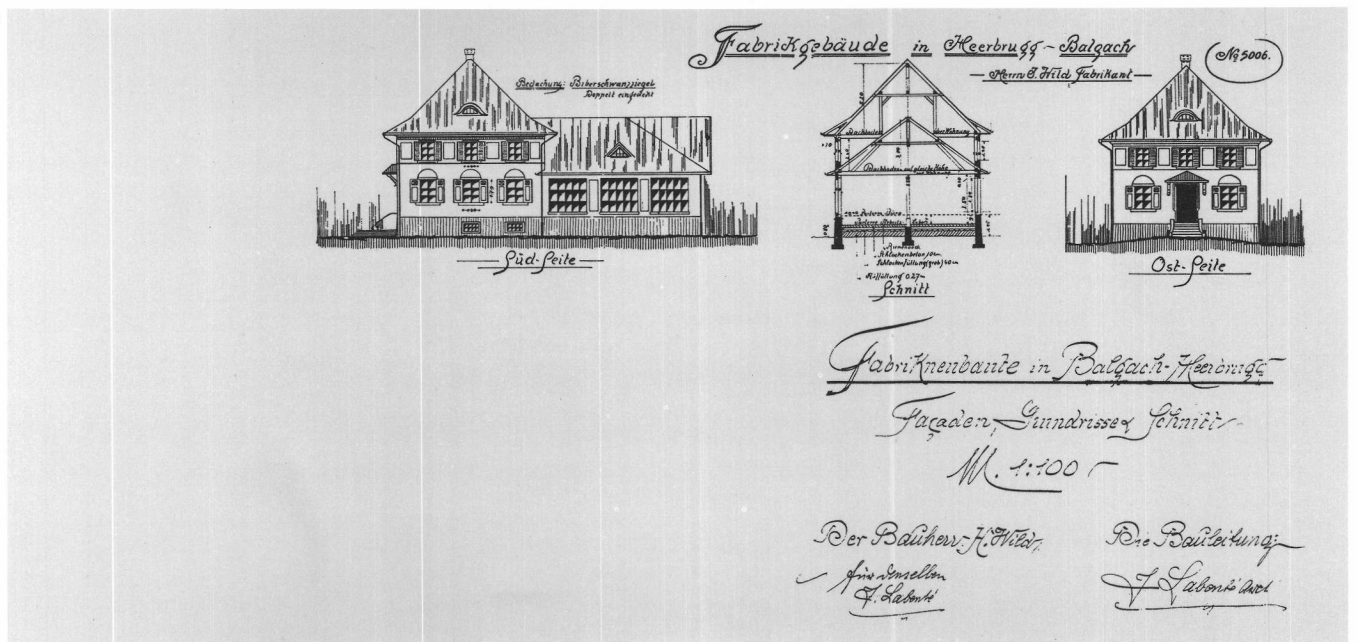 Fabrikgebäude in Heerbrugg-Balgach
Herrn J. Wild Fabrikant
No 5006.
Bedachung: Biberschwanzziegel
Doppelt eingedeckt
Dachboden über Wohnung
Dachboden auf gleiche Höhe
Schlackenbeton 10cm
Schlackenfüllung (grob) 20cm
Auffüllung 0.27m
Süd-Seite
Schnitt
Ost-Seite
Fabrikneubaute in Balgach-Heerbrugg
Façaden, Grundrisse & Schnitt
M. 1:100
Der Bauherr: H. Wild,
für denselben
J. Labonté
Die Bauleitung:
J. Labonté Arct